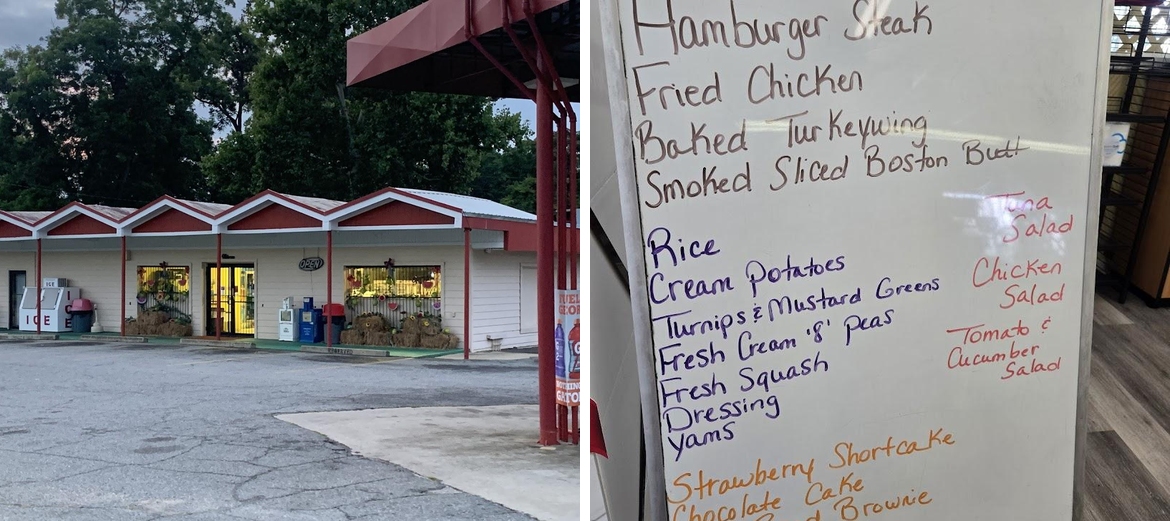 OPEN
ICE
ICE
Hamburger Steak
Fried Chicken
Baked Turkeywing
Smoked Sliced Boston Butt
Rice
Cream Potatoes
Turnips & Mustard Greens
Fresh Cream '8' peas
Fresh Squash
Dressing
Yams
Tuna
Salad
Chicken
Salad
Tomato &
Cucumber
Salad
Strawberry Shortcake
Chocolate Cake
Brownie